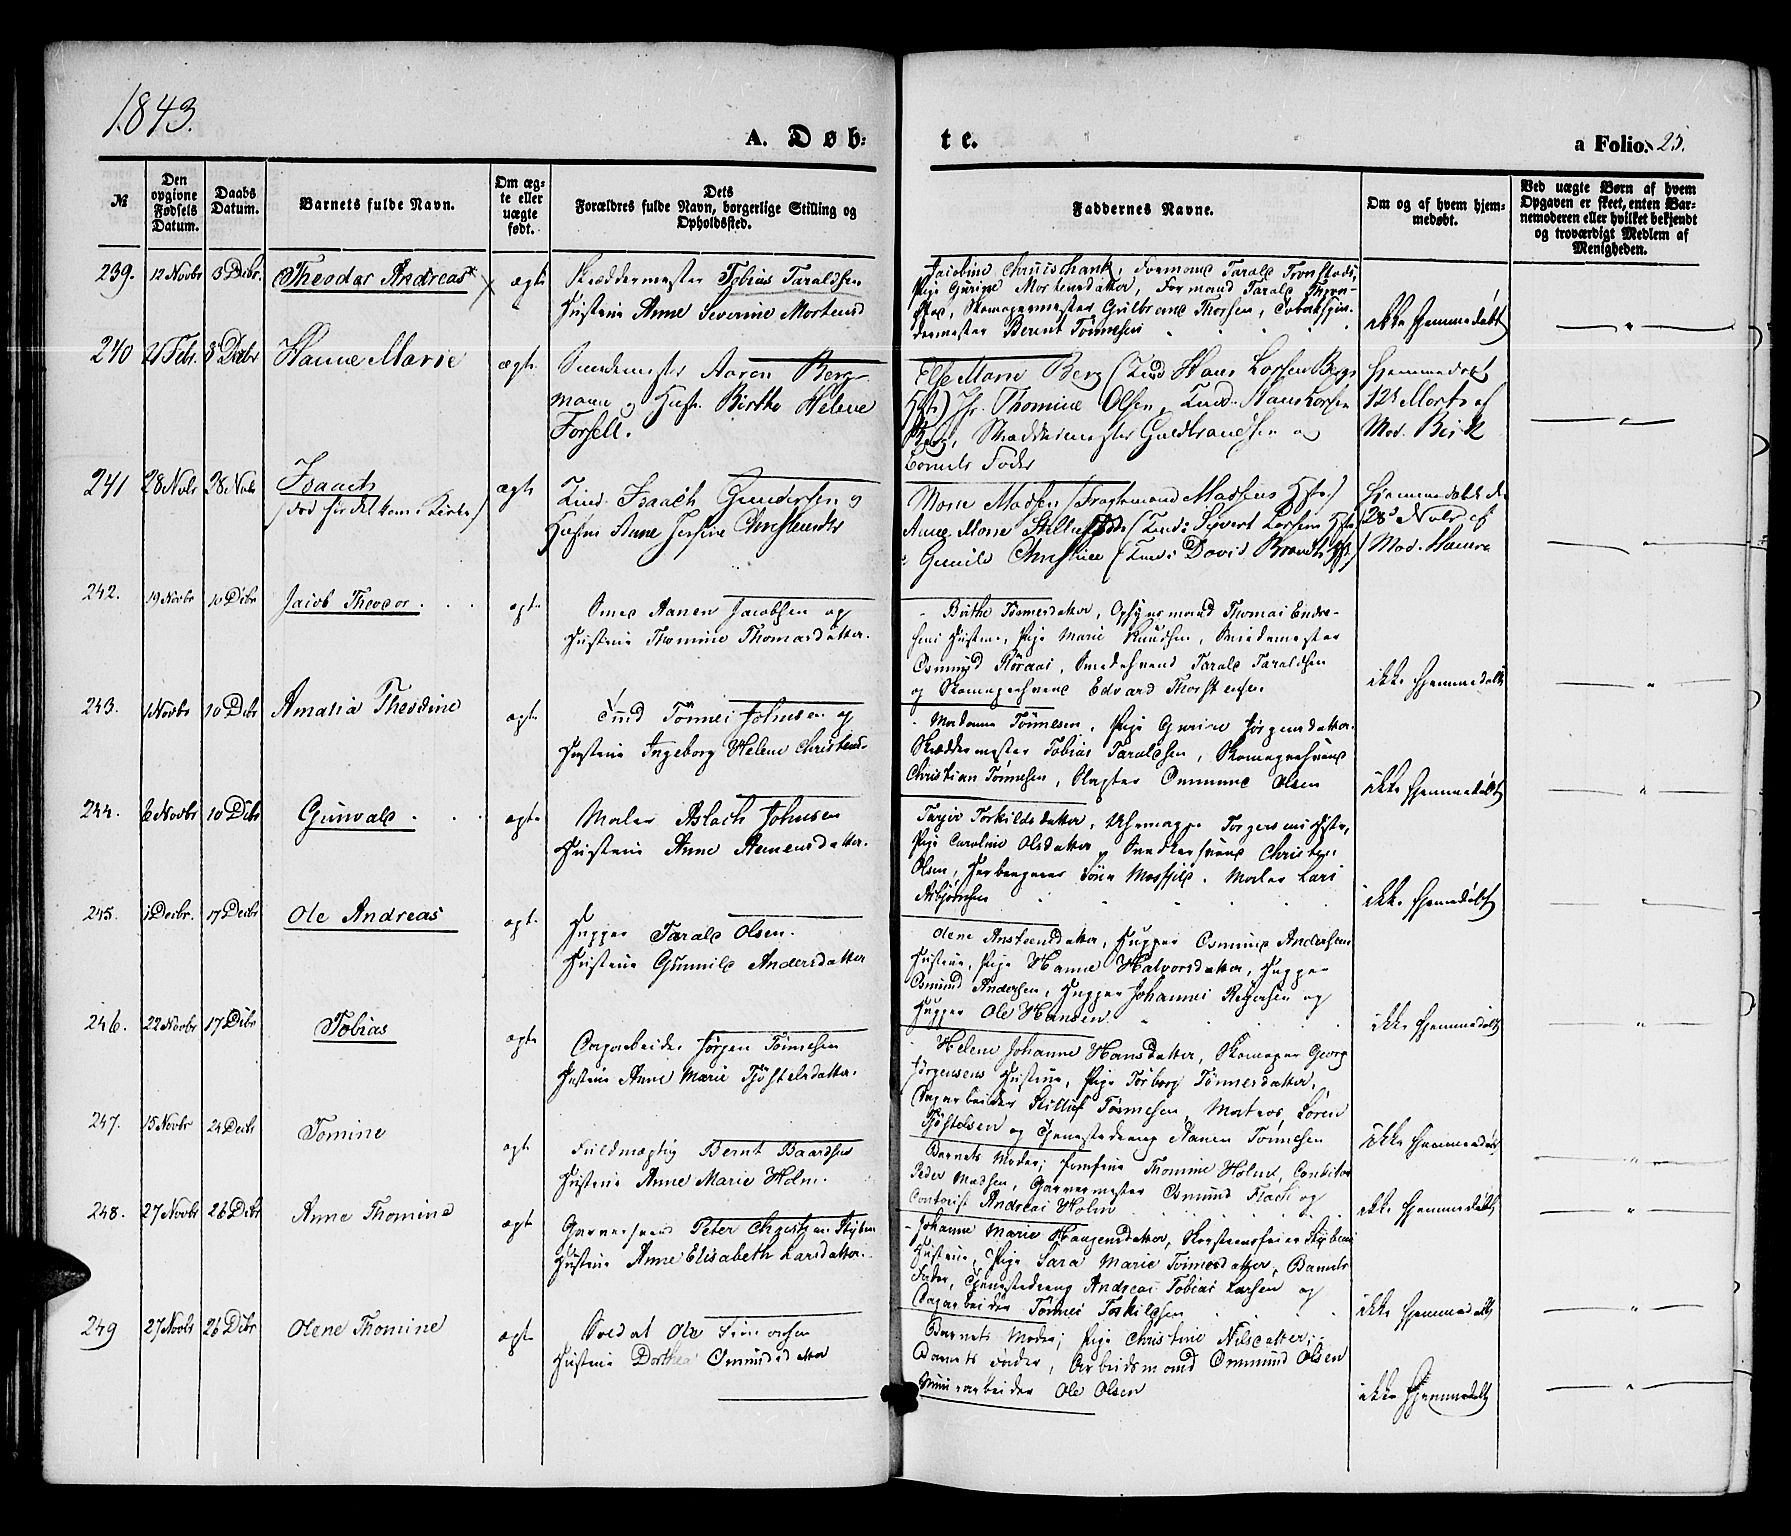 1843.
A. Døb:
te.
a Folio. 25.
№
Den opgivne Fødsels Datum.
Daabs Datum.
Barnets fulde Navn.
Om ægte eller uægte født.
Dets Forældres fulde Navn, borgerlige Stilling og Opholdssted.
Faddernes Navne.
Om og af hvem hjemmedøbt.
Ved uægte Børn af hvem Opgaven er skeet, enten Barnemoderen eller hvilket bekjendt og troværdigt Medlem af Menigheden.
239. 12 Novbr 3 Debr. Theodor Andreas ægte
Skræddermester Tobias Taraldsen
Hustrue Anne Severine Mortensd
Pige Gurine Mortensdatter, Formand Tarald
Skomagermester Gulbrand Thorsen, Tobakspin-
dermester Bernt Tönnesen
ikke hjemmedøbt
240 21 Febr. 3 Decbr Hanne Marie ægte
Smedemester Aaron Berg-
mann og Hustr. Birthe Helene
Forsell.
Else Marie Berg (Tind Hans Larsen Bergs
Hst) Jfr. Thomine Olsen, Tind. Hans Larsen
Berg, Skræddermester Guldbrandsen og
Barnets Fader
Hjemmedøbt
12te Marts af
Mad. Birk
241 28 Novbr 28 Novbr Isaach ægte
(død før det kom i Kirke)
Tind. Isaach Gundersen og
Hustru Anne Christensdtr
Marie Madsen (Fragtemand Madsens Hstr)
Anne Marie (Tind: Sivert Larsens Hstr
Gunild Christine (Tind: David Brandts Hst)
Hjemmedøbt d.
28d Novbr af
Mad. Hanna
242. 19 Novbr 10 Dcbr Jacob Theodor ægte
Smed Aanen Jacobsen og
Hustrue Thomine Thomasdatter.
Birthe Tönnesdatter, Opsynsmand Thomas Endre-
sens Hustrue, Pige Marie Knudsen, Smedemester
Osmund Röraas, Smedesvend Tarald Taraldsen
og Skomagersvend Edvard Thorstensen
ikke hjemmedøbt
243. 1 Novbr 10 Dcbr Amalia Theodine ægte
Tind Tönnes Johnsen og
Hustrue Ingeborg Helene Christensd
Madame Tönnesen, Pige Gurine Jörgensdatter
Skræddermester Tobias Taraldsen, Skomagersvend
Christian Tönnesen, Slagter Ommund Olsen
ikke hjemmedøbt
244. 6 Novbr 10 Dcbr Gunvald ægte
Maler Aslach Johnsen
Hustrue Anne Aanensdatter.
Targir Torkildsdatter, Uhrmager Torgersens Hstr,
Pige Caroline Olsdatter, Snedkersvend Christen
Olsen, Maler Lars
Asbjörnsen
ikke hjemmedøbt
245. 1 Decbr. 17 Decbr Ole Andreas ægte
Hugger Tarald Olsen.
Hustrue Gunnild Andersdatter
Olene Anstensdatter, Hugger Osmund Andersen
Hustrue, Pige Hanne Halvorsdatter, Hugger
Osmund Andersen, Hugger Johannes Reiersen og
Hugger Ole Hansen.
ikke hjemmedøbt
246. 22 Novbr 17 Dcbr Tobias ægte
Dagarbeider Jörgen Tönnesen
Hustrue Anne Marie Tjöstelsdatter.
Helene Johanne Hansdatter, Skomager Georg
Jörgensens Hustrue, Pige Torborg Tönnesdatter,
Dagarbeider Stilluf Tönnesen, Matros Sören
Tjöstelsen og Aanen Tönnesen
ikke hjemmedøbt
247. 15 Novbr 24 Decbr Tomine ægte
Fuldmægtig Bernt Baardsen
Hustrue Anne Marie Holm.
Barnets Moder; Jomfrue Thomine Holm, Conditor
Peder Madsen, Garvermester Osmund og
Contorist Andreas Holm
ikke hjemmedøbt
248. 27 Novbr 26 Dcbr Anne Thomine ægte
Garversvend Peter Christian
Hustrue Anne Elisabeth Larsdatter.
Johanne Marie Haagensdatter, Skorstensfeier
Hustrue, Pige Sara Marie Tönnesdatter, Barnets
Fader, Andreas Tobias Larsen og
Dagarbeider Tönnes Torkildsen
ikke hjemmedøbt
249 27 Novbr 26 Dcbr Olene Thomine ægte
Soldat Ole Simonsen
Hustrue Dorthea Omundsdatter
Barnets Moder; Pige Christine Nilsdatter;
Barnets Fader, Arbeidsmand Ommund Olsen
Muurarbeider Ole Olsen
ikke hjemmedøbt